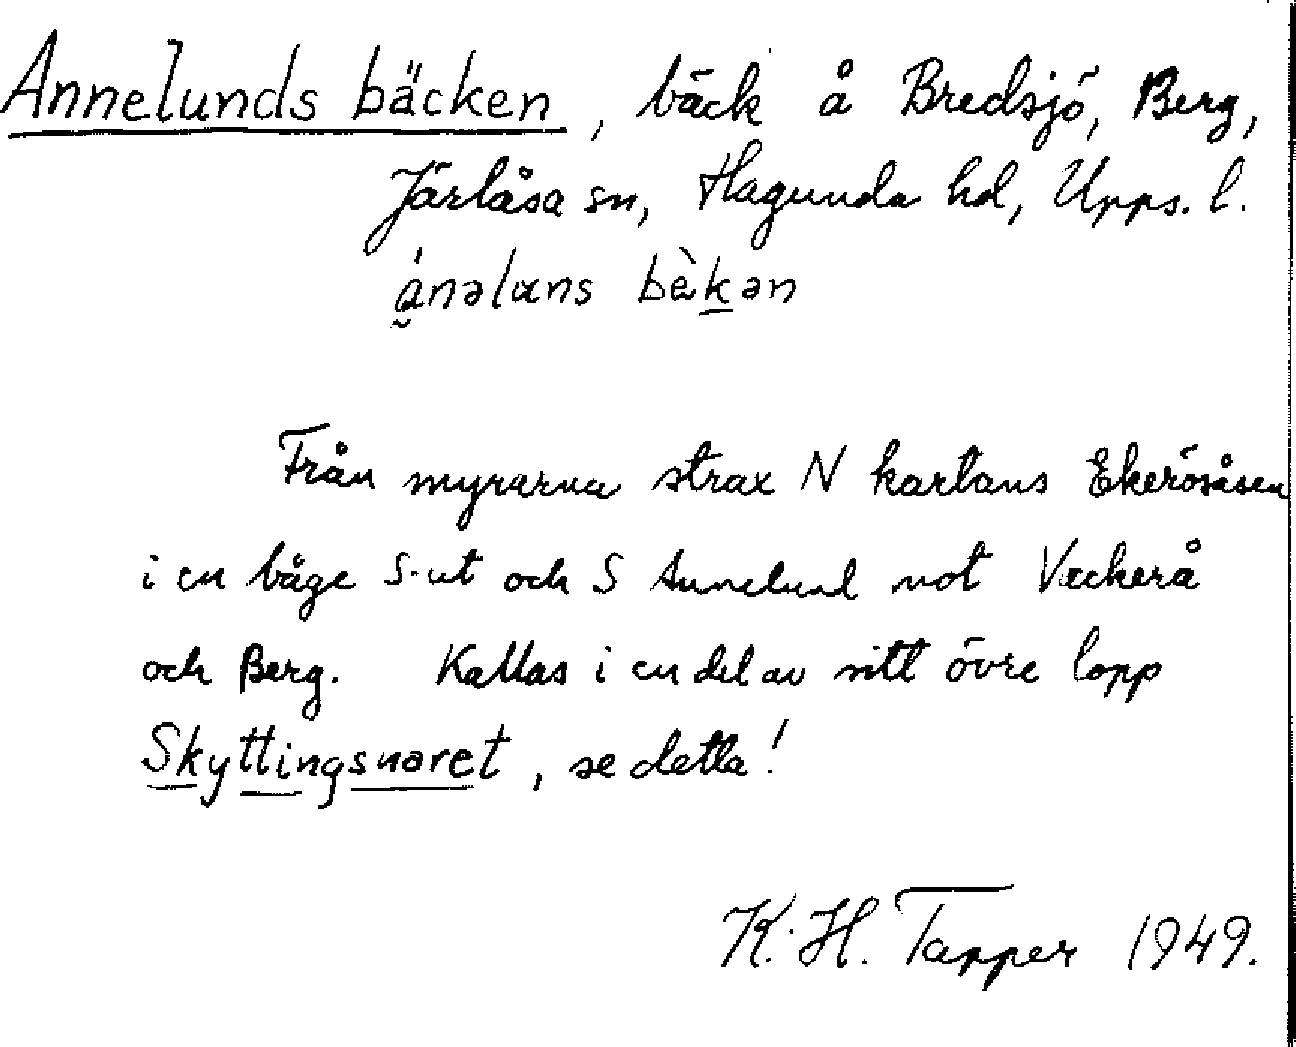 Annelunds bäcken, bäck å Bredsjö, Berg,
Järlåsa sn, Hagunda hd, Upps. l.
ánəlɯns bæ̀kən
Från myrarna strax N kartans Ekerösåsen
i en båge S-ut och S Annelund mot Vackerå
och Berg. Kallas i en del av sitt övre lopp
Skyttingsnaret, se detta!
K. H. Tapper 1949.